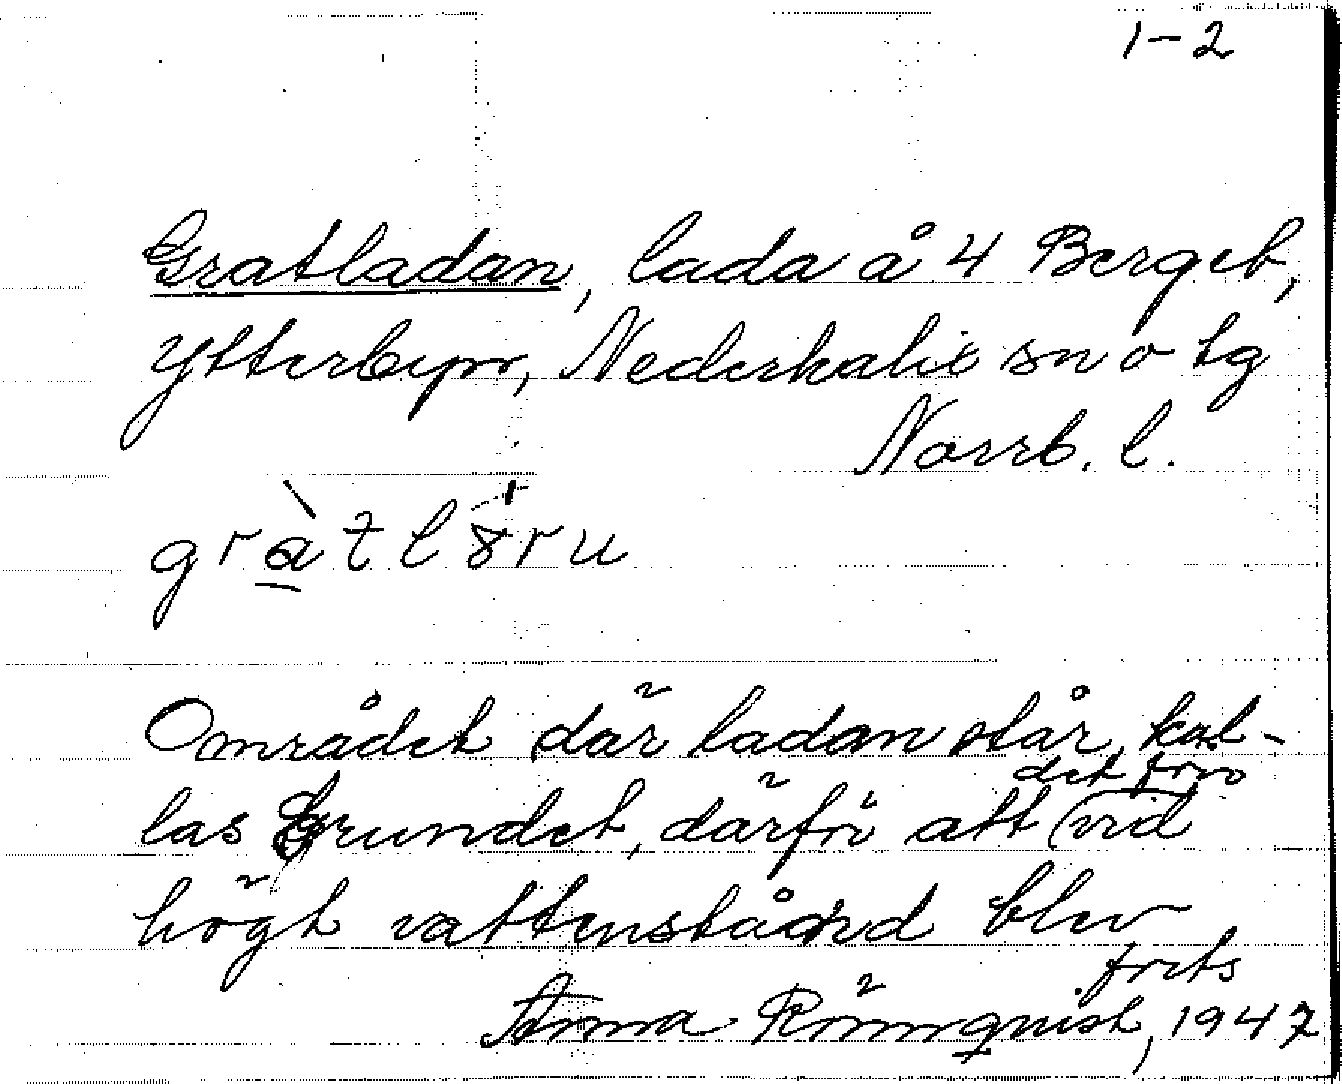 1-2
Gratladan, lada å 4 Berget,
Ytterbyn, Nederkalix sn o tg
Norrb. l.
gràtlöru
Området där ladan står, kal-
las Grundet, därför att det förr vid
högt vattenstånd blev
forts
Anna Rönnquist, 1947